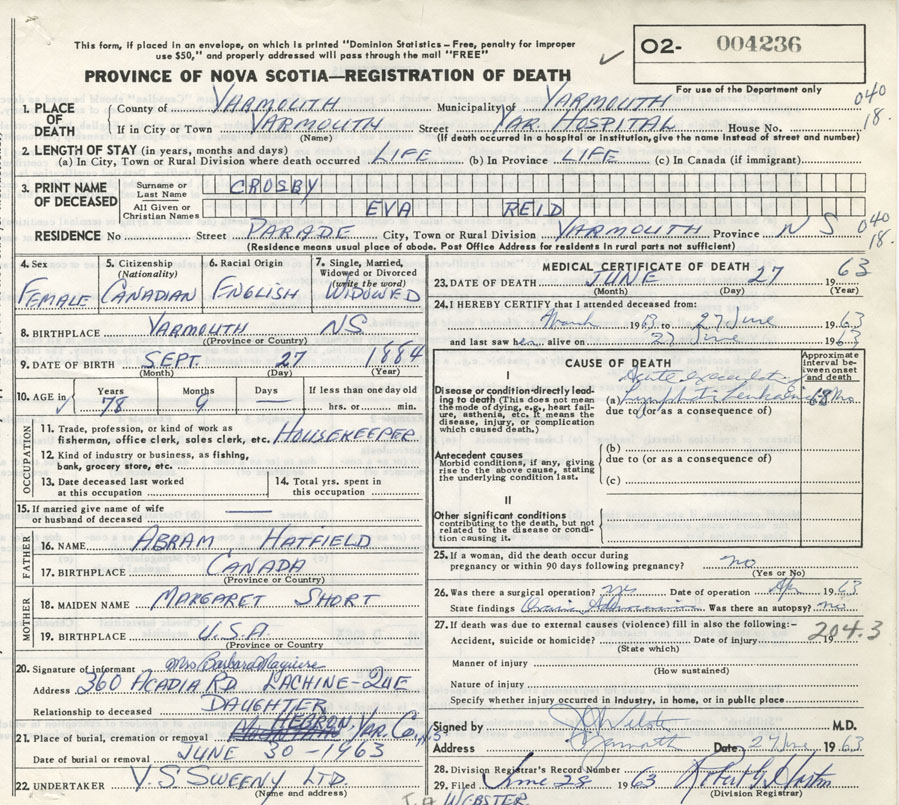 This form, if placed in an envelope, on which is printed "Dominion Statistics—Free, penalty for improper
use $50," and properly addressed will pass through the mail "FREE"
O2- 004236
For use of the Department only
PROVINCE OF NOVA SCOTIA—REGISTRATION OF DEATH
1. PLACE OF DEATH
County of YARMOUTH Municipality of YARMOUTH
040
18.
If in City or Town YARMOUTH Street YAR HOSPITAL House No.
(Name) (If death occurred in a hospital or institution, give the name instead of street and number)
2. LENGTH OF STAY (in years, months and days)
(a) In City, Town or Rural Division where death occurred LIFE (b) In Province LIFE (c) In Canada (if immigrant)
3. PRINT NAME OF DECEASED
Surname or Last Name CROSBY
All Given or Christian Names EVA REID
RESIDENCE No Street PARADE City, Town or Rural Division YARMOUTH Province N S
040
18.
(Residence means usual place of abode. Post Office Address for residents in rural parts not sufficient)
4. Sex FEMALE
5. Citizenship (Nationality) CANADIAN
6. Racial Origin ENGLISH
7. Single, Married, Widowed or Divorced (write the word) WIDOWED
8. BIRTHPLACE YARMOUTH NS
(Province or Country)
9. DATE OF BIRTH SEPT. 27 1884
(Month) (Day) (Year)
10. AGE in Years 78 Months 9 Days — If less than one day old
hrs. or min.
OCCUPATION
11. Trade, profession, or kind of work as
fisherman, office clerk, sales clerk, etc. HOUSEKEEPER
12. Kind of industry or business, as fishing,
bank, grocery store, etc.
13. Date deceased last worked
at this occupation
14. Total yrs. spent in
this occupation
15. If married give name of wife
or husband of deceased —
FATHER
16. NAME ABRAM HATFIELD
17. BIRTHPLACE CANADA
(Province or Country)
MOTHER
18. MAIDEN NAME MARGARET SHORT
19. BIRTHPLACE U.S.A.
(Province or Country)
20. Signature of informant Mrs Barbara
Address 360 ACADIA RD. LACHINE-QUE
Relationship to deceased DAUGHTER
21. Place of burial, cremation or removal HEBRON, YAR. Co, NS
Date of burial or removal JUNE 30-1963
22. UNDERTAKER V.S. SWEENY LTD
(Name and address)
MEDICAL CERTIFICATE OF DEATH
23. DATE OF DEATH JUNE 27 1963
(Month) (Day) (Year)
24. I HEREBY CERTIFY that I attended deceased from:
March 19 to 27 June 1963
and last saw her alive on 27 June 1963
CAUSE OF DEATH
Approximate interval between onset and death
I
Disease or condition directly leading
to death (This does not mean
the mode of dying, e.g., heart failure,
asthenia, etc. It means the
disease, injury, or complication
which caused death.)
Acute
(a)
due to (or as a consequence of)
Antecedent causes
Morbid conditions, if any, giving
rise to the above cause, stating
the underlying condition last.
(b)
due to (or as a consequence of)
(c)
II
Other significant conditions
contributing to the death, but not
related to the disease or condition
causing it.
25. If a woman, did the death occur during
pregnancy or within 90 days following pregnancy? no
(Yes or No)
26. Was there a surgical operation? yes Date of operation Apr 1963
State findings Was there an autopsy? no
27. If death was due to external causes (violence) fill in also the following:—
204.3
Accident, suicide or homicide? Date of injury 19
(State which)
Manner of injury
(How sustained)
Nature of injury
Specify whether injury occurred in industry, in home, or in public place
Signed by M.D.
Address Yarmouth Date 27 June 1963
28. Division Registrar's Record Number
29. Filed June 28 1963 Robert G
(Division Registrar)
WEBSTER